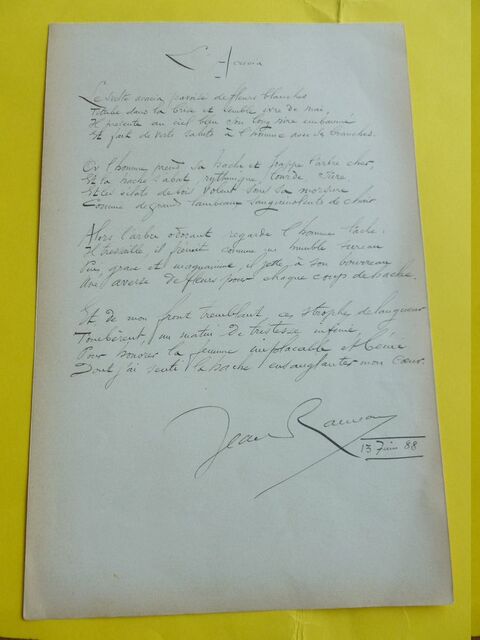 L'Acacia
Le svelte acacia paroisse de fleurs blanches
Titube dans la brise et semble ivre de mai,
Il présente au ciel bleu son long rire embaumé
Et fait de verts saluts à l'homme avec ses branches.
Or l'homme prend sa hache et frappe l'arbre cher,
Et la hache s'abat, rythmique, lourde, sûre
Et les éclats de bois volent sous sa morsure
Comme de grands lambeaux sanguinolents de chair
Alors l'arbre odorant regarde l'homme lâche.
Il tressaille, il frémit comme un humble
Puis, grave et magnanime, il jette à son bourreau
Une averse de fleurs pour chaque coup de hache.
Et de mon front tremblant, ces strophes de langueur
Tombèrent, un matin de tristesse infinie,
Pour honorer la femme implacable et bénie
Dont j'ai senti la hache ensanglanter mon cœur.
Jean Rameau
13 Juin 88